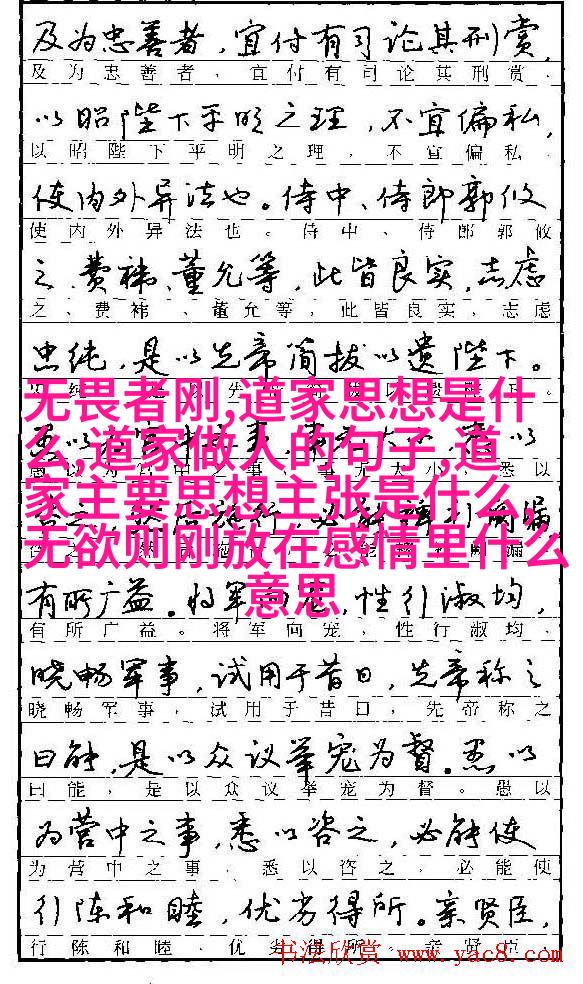 及为忠善者，宜付有司论其刑赏，
及为忠善者，宜付有司论其刑赏，
以昭陛下平明之理，不宜偏私，
以昭陛下平明之理，不宜偏私，
使内外异法也。侍中、侍郎郭攸
使内外异法也。侍中、侍郎郭攸
之、费祎、董允等，此皆良实，志虑
之、费祎、董允等，此皆良实，志虑
忠纯，是以先帝简拔以遗陛下。
无畏者刚,道家思想是什
么,道家做人的句子,道
家主要思想主张是什么,
无欲则刚放在感情里什么
意思
事无大小，悉以
有所广益。将军向宠，性行淑均，
有所广益。将军向宠，性行淑均，
晓畅军事，试用于昔日，先帝称之
晓畅军事，试用于昔日，先帝称之
曰能，是以众议举宠为督。愚以
曰能，是以众议举宠为督。愚以
为营中之事，悉以咨之，必能使
为营中之事，悉以咨之，必能使
行陈和睦，优劣得所。亲贤臣，
行陈和睦，优劣得所。亲贤臣，
书法欣赏 www.yac8.com